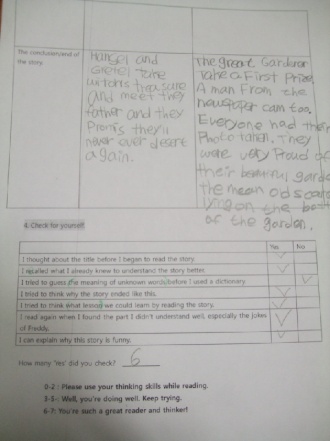 The conclusion/end of
the story
Hansel and
Gretel take
witch's treasure
and meet they
father and they
Promis they'll
never ever desert
again.
The great Gardener
Take a First Prize.
A man From the
newspaper cam too.
Everyone had their
Photo taken. They
were very Proud of
their beautiful garde
the mean old scare
lying on the bott
of the garden.
4. Check for yourself
Yes No
I thought about the title before I began to read the story.
I recalled what I already knew to understand the story better.
I tried to guess the meaning of unknown words before I used a dictionary.
I tried to think why the story ended like this.
I tried to think what lesson we could learn by reading the story.
I read again when I found the part I didn't understand well, especially the jokes
of Freddy.
I can explain why this story is funny.
How many 'Yes' did you check? 6
0-2 : Please use your thinking skills while reading.
3-5 : Well, you're doing well. Keep trying.
6-7: You're such a great reader and thinker!